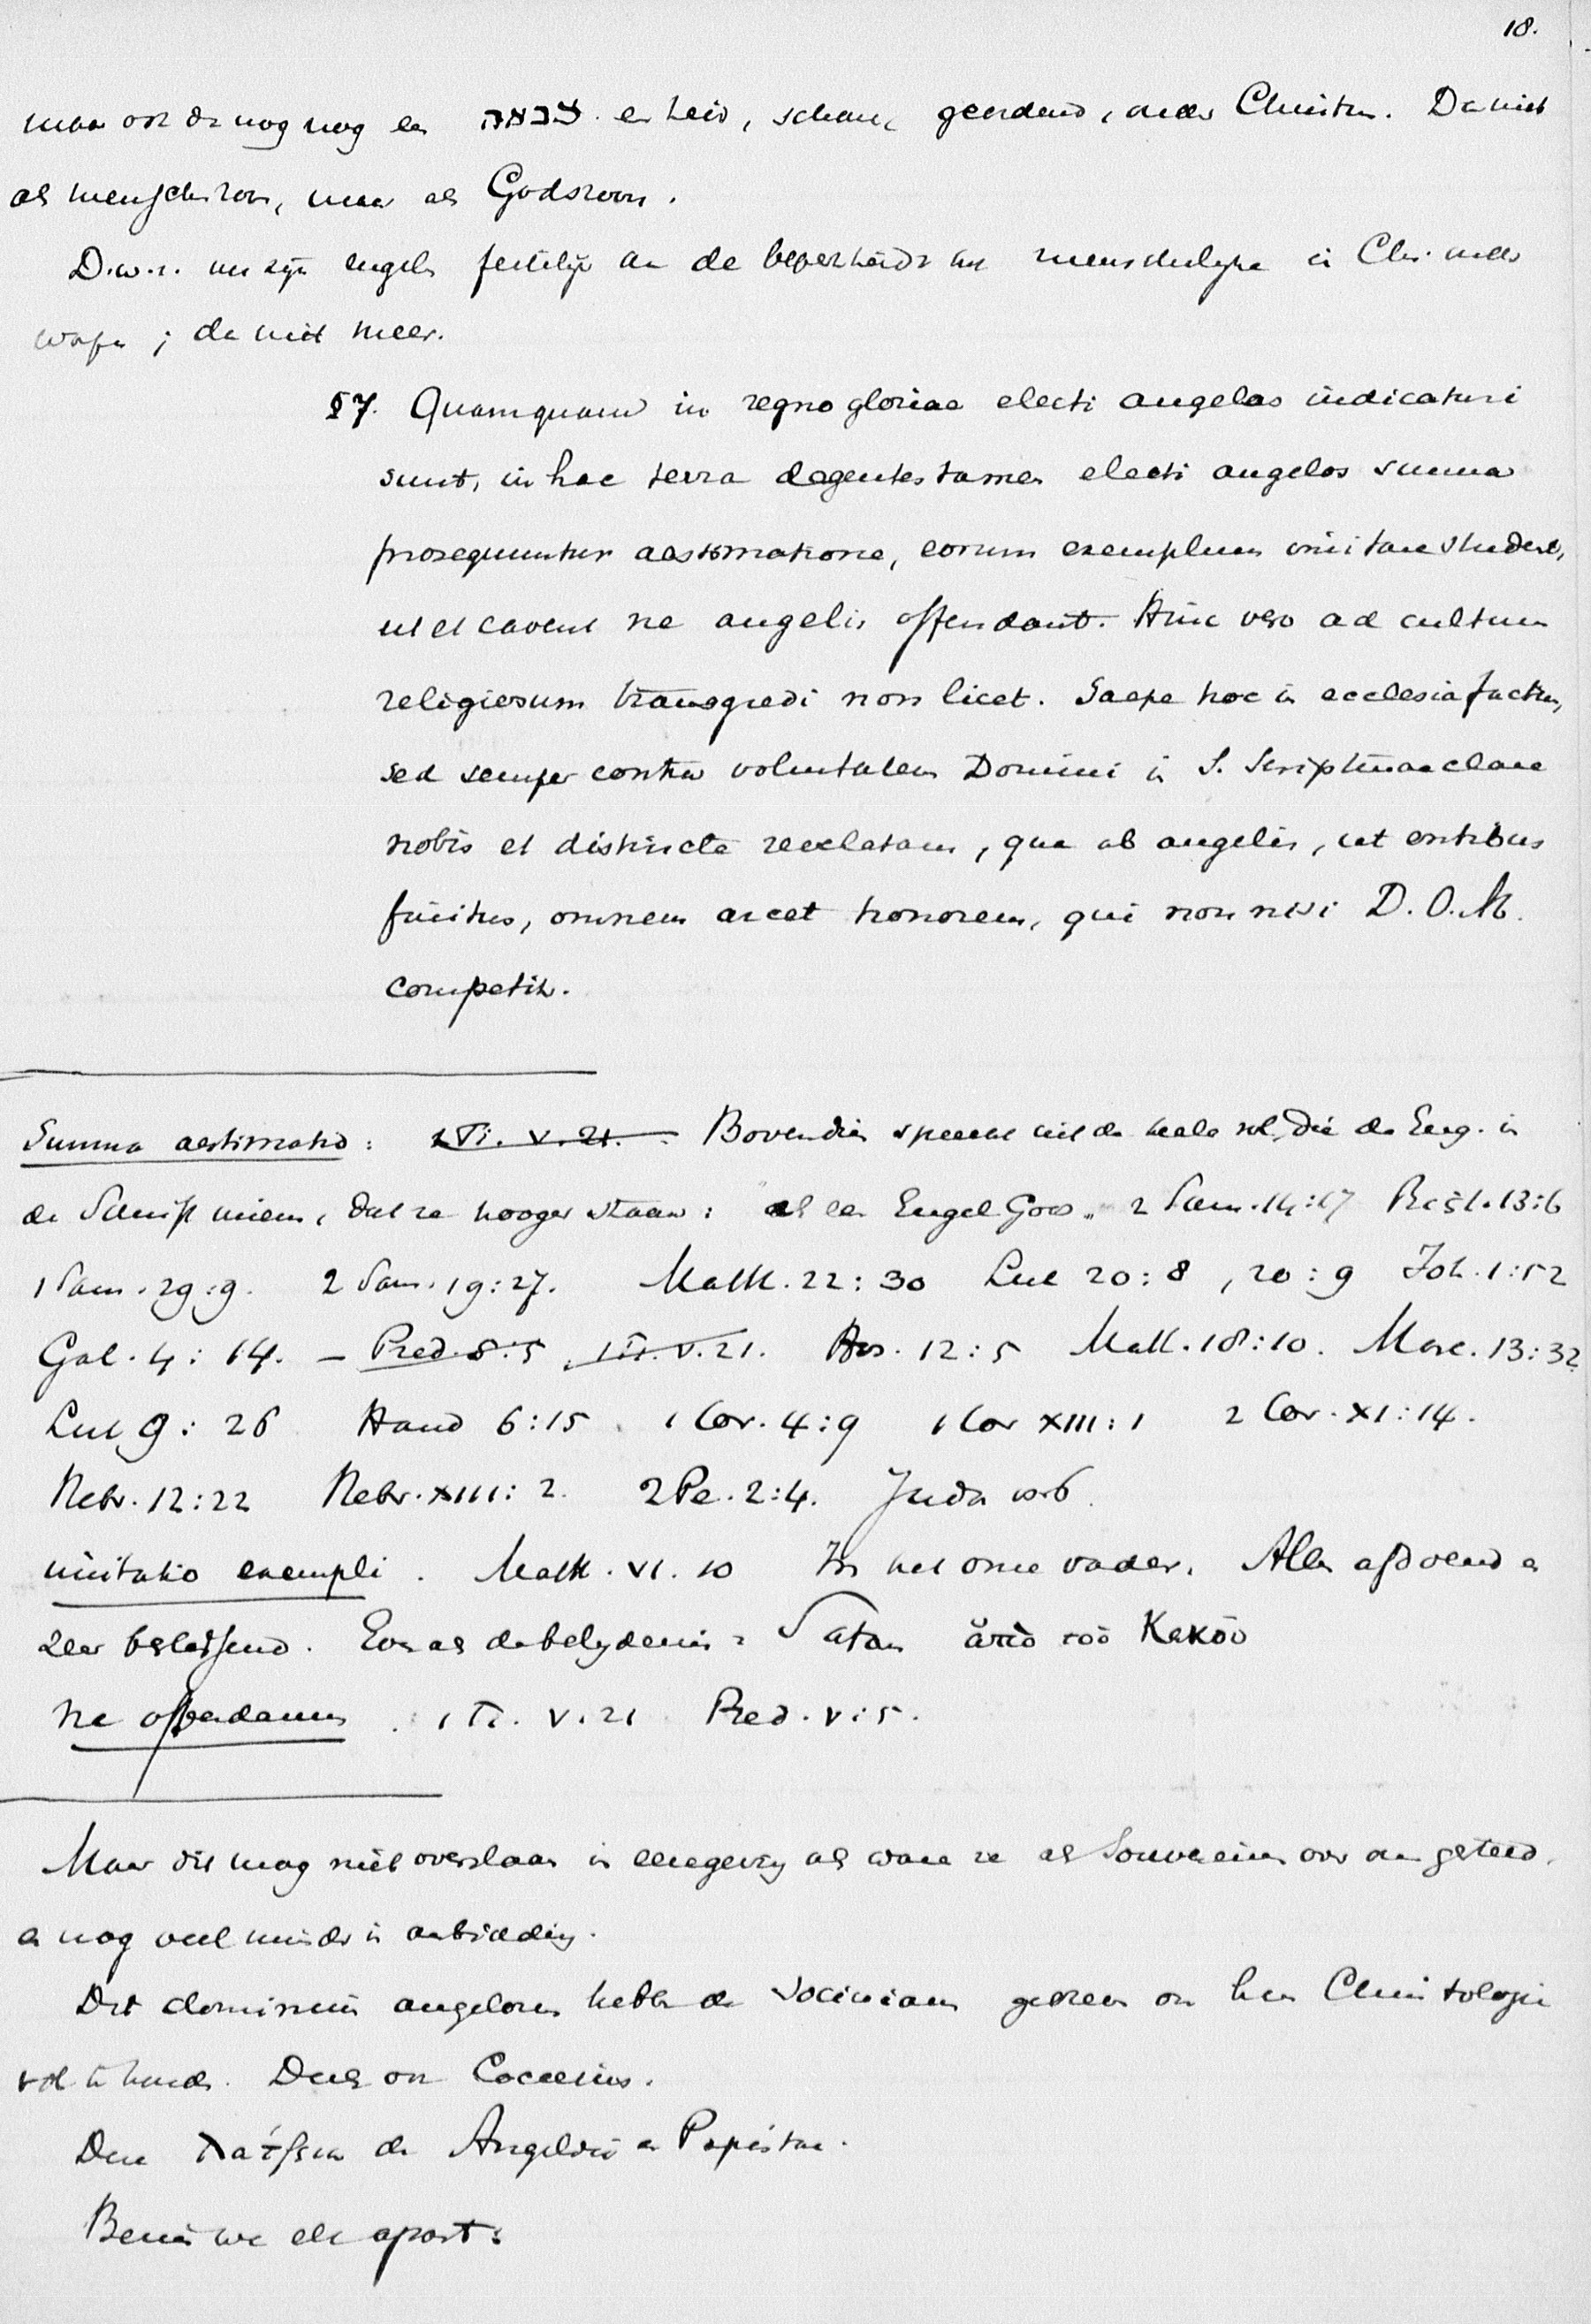 18.
maar ook dan nog nog een צבאה een heir, schaar, geordend, onder Christus. Dan niet
als menschenzoon, maar als Godszoon.
D.w.z. nu zijn engelen feitelijk aan de beperktheid v. h. menschelijke in Chr. onder
worpen; dan niet meer.
§7. Quamquam in regno gloriae electi angelos iudicaturi
sunt, in hac terra degentes tamen electi angelos summa
prosequuntur aestimatione, eorum exemplum imitare student,
ut et cavent ne angelis offendant. Hinc vero ad cultum
religiosum transgredi non licet. Saepe hoc in ecclesia factum,
sed semper contra voluntatem Domini in S. Scriptura clare
nobis et distincte revelatam, quae ab angelis, ut entibus
finitis, omnem arcet honorem, qui non nisi D.O.M.
competit.
Summa aestimatio: 1 Ti. V. 21. Bovendien spreekt uit de heele rol, die de Eng. in
de Schrift innemen, dat ze hooger staan: als een Engel Gods „ 2 Sam. 14:17 Richt. 13:6
1 Sam. 29:9. 2 Sam. 19:27. Matth. 22:30 Luc 20:8, 20:9 Joh. 1:52
Gal. 4:14. – Pred. 8:5, 1 Ti. V. 21. Hos. 12:5 Matt. 18:10. Marc. 13:32
Luc 9:26 Hand 6:15. 1 Cor. 4:9 1 Cor XIII:1 2 Cor. XI:14.
Hebr. 12:22 Hebr. XIII:2. 2 Pe. 2:4. Juda vs 6.
imitatio exempli. Matth. VI. 10 In het onze vader. Alles afdoend en
zeer beslissend. Even als de belijdenis: Satan ἀπὸ τοῦ Κακοῦ
ne offendamus. 1 Ti. V. 21 Pred. V:5.
Maar dit mag niet overslaan in eeregeving als waren ze als Souvereinen over ons gesteld.
en nog veel minder in aanbidding.
Dit dominium angelorum hebben de Socinianen gedreven om hun Christologie
vol te houden. Deels ook Coccejus.
Den λατρεία de Angelici en Papistae.
Bezien we elk apart: